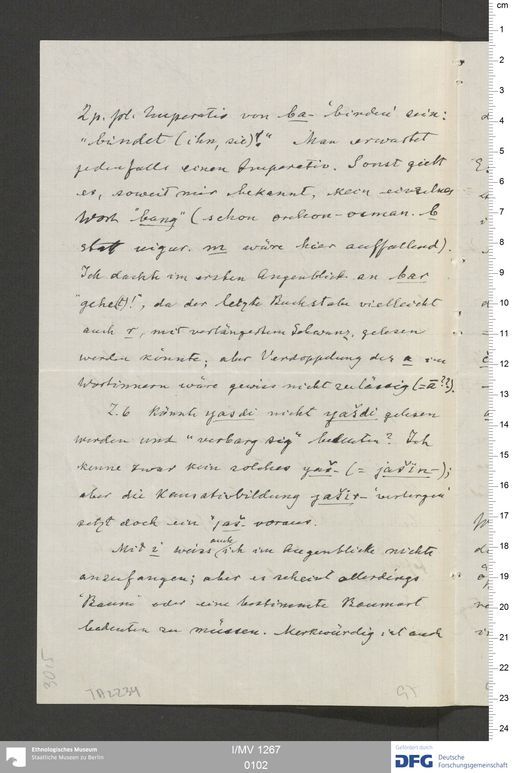 2 p. pl. Imperativ von ba- 'binden' sein:
"bindet (ihn, sie)!" Man erwartet
jedenfalls einen Imperativ. Sonst giebt
es, soweit mir bekannt, kein einzelnes
Wort "bang" (schon orchon-osman. b
statt uigur. m wäre hier auffallend).
Ich dachte im ersten Augenblick an bar
"gehe(t)!", da der letzte Buchstabe vielleicht
auch r, mit verlängertem Schwanz, gelesen
werden könnte; aber Verdoppelung des a im
Wortinnern wäre gewiss nicht zulässig (=ā??).
Z. 6 könnte yasdi nicht yašdi gelesen
werden und "verbarg sig" bedeuten? Ich
kenne zwar kein solches yaš- (= jašïn-);
aber die Kausativbildung jašïr- 'verbergen'
setzt doch ein *jaš- voraus.
Mit i weiss auch ich im Augenblicke nichts
anzufangen; aber es scheint allerdings
'Baum' oder eine bestimmte Baumart
bedeuten zu müssen. Merkwürdig ist auch
3015
TA 2234
Ethnologisches Museum
Staatliche Museen zu Berlin
I/MV 1267
0102
Gefördert durch
DFG Deutsche
Forschungsgemeinschaft
cm
1
2
3
4
5
6
7
8
9
10
11
12
13
14
15
16
17
18
19
20
21
22
23
24